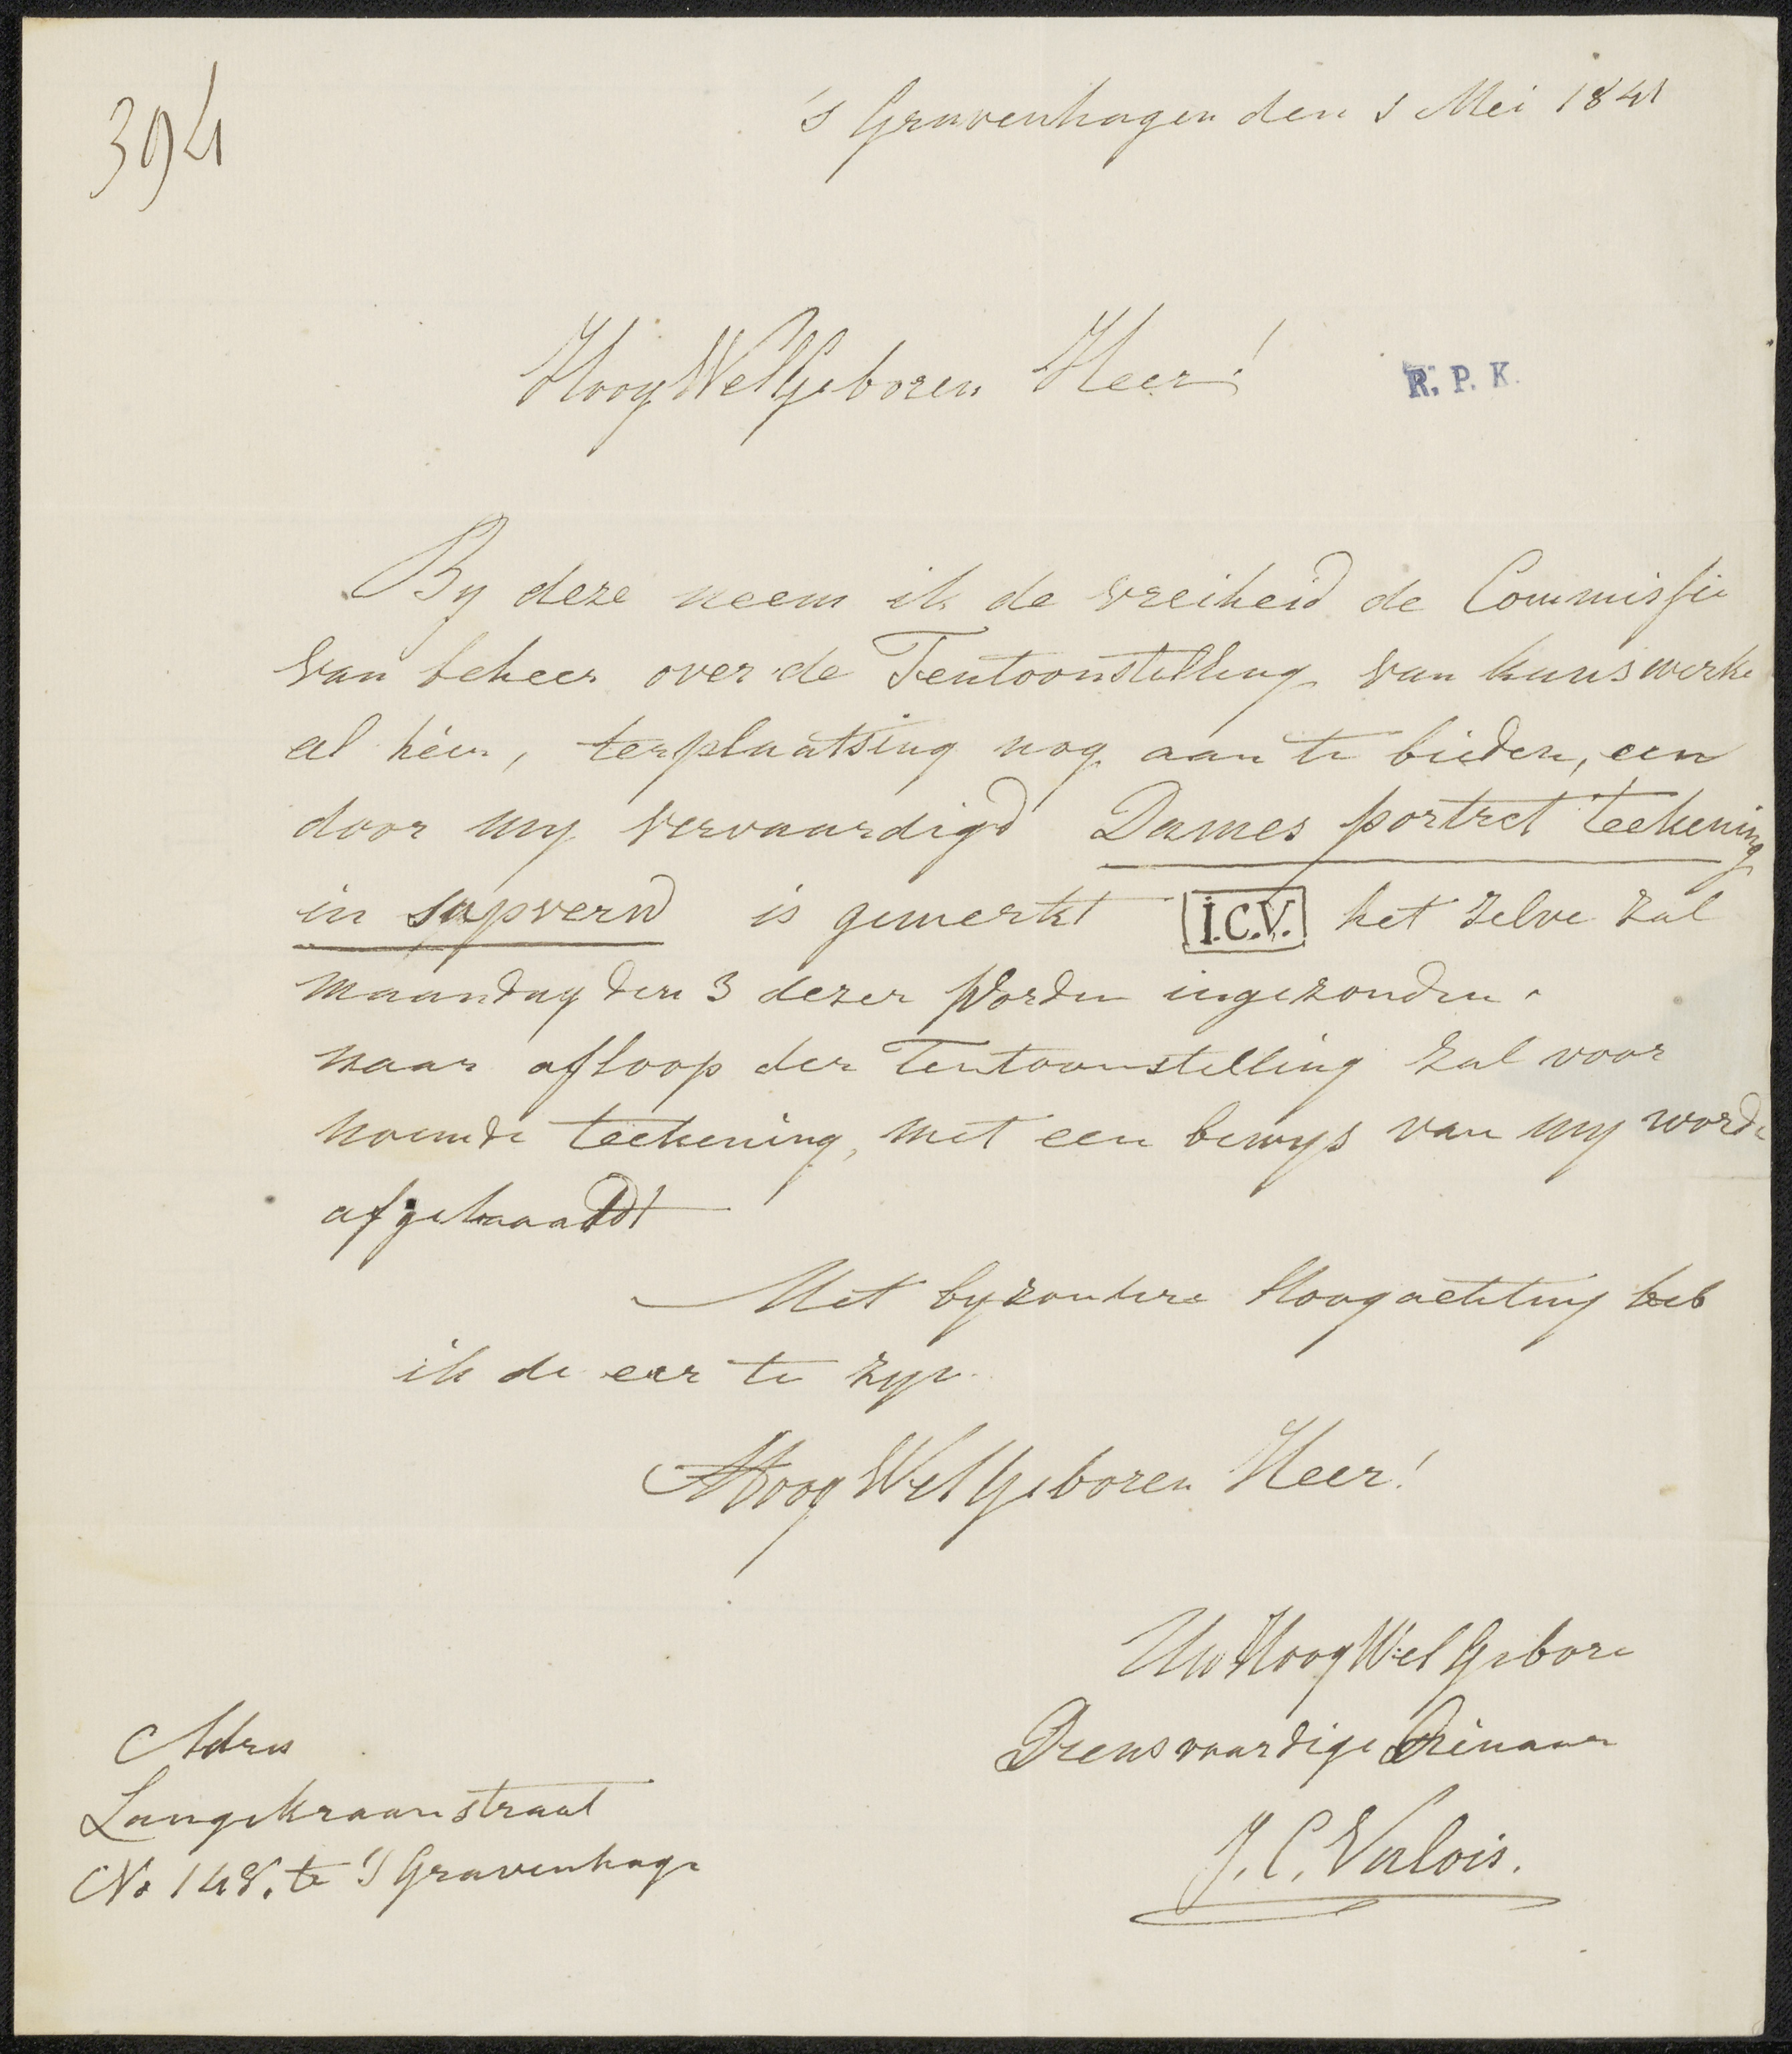 394
's Gravenhagen den 1 Mei 1841
HoogWelGeboren Heer!
R. P. K.
By deze neem ik de vreiheid de Commissie
van beheer over de Tentoonstelling van kunswerke
al hier, terplaatsing nog aan te bieden, een
door my vervaardigd Dames portret teekening
in sapverw is gemerkt I.C.V. het zelve zal
maandag den 3 dezer Worden ingezonden.
naar afloop der Tentoonstelling zal voor
noemde teekening, met een bewys van my worde
afgehaald
Met byzondere Hoogachting heb
ik de eer te zyn.
HoogWelGeboren Heer!
Uw HoogWelGebore
Diensvaardige Dienaar
J. C. Valois.
Adres
Langekraanstraat
No 148. te 'S Gravenhage